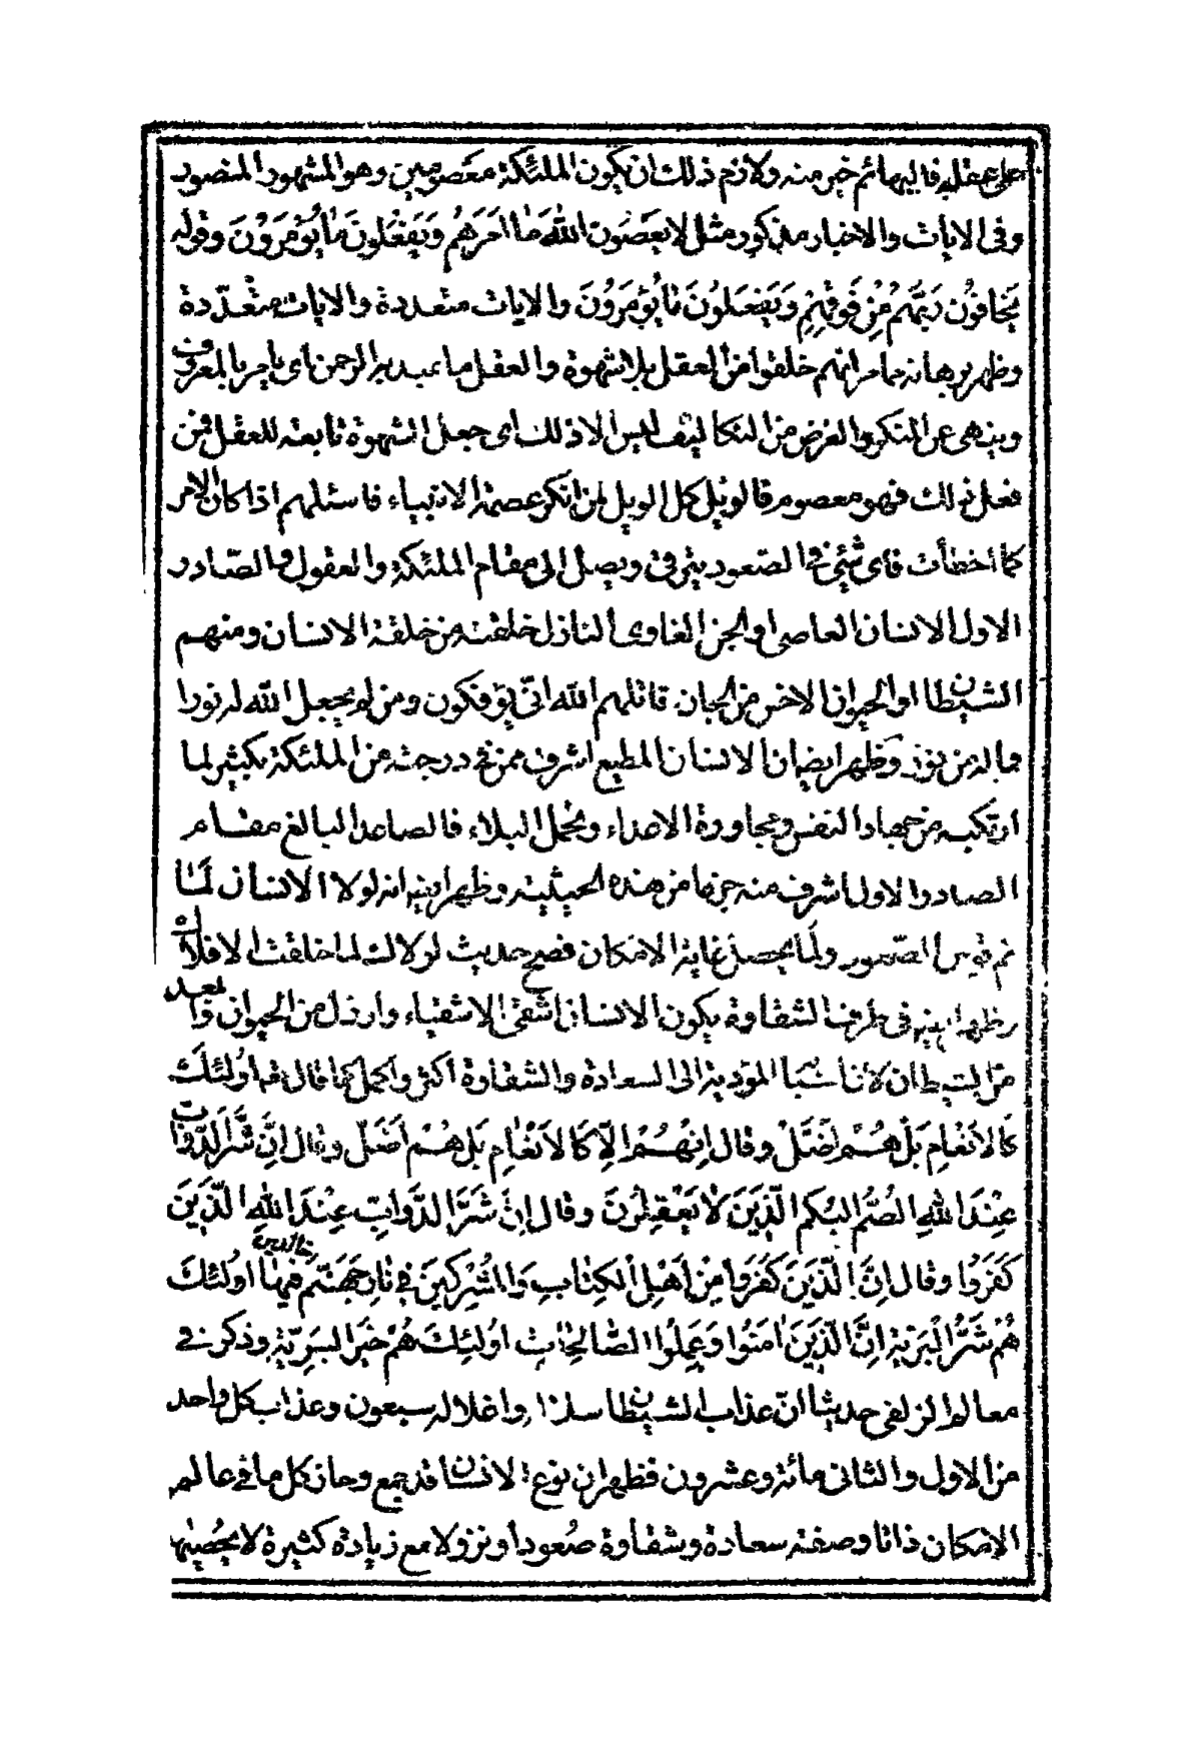 على عقله فالبهائم خير منه ولازم ذلك ان يكون الملئكة معصومين وهو المشهور المنصور
وفى الايات والاخبار مذكور مثل لا يعصون الله مَا اَمَرَهُم وَيَفْعَلونَ مَا يُؤمَرُونَ وقوله
يَخافُون رَبَّهُم مِنْ فَوقِهِم وَيَفعَلوُنَ مَا يُؤمَرُونَ والايات متعددة والايات متعدّدة
وظهر برهانه مما مر انهم خلقوا من العقل بلا شهوة والعقل ما عبد به الرحمن اى يامر بالمعروف
وينهى عن المنكر والغرض من التكاليف ليس الا ذلك اى جعل الشهوة تابعة للعقل فمن
فعل ذلك فهو معصوم فالويل كل الويل لمن انكر عصمة الانبياء فاسئلهم اذا كان الامر
كما اخطأت فاى شئ فى الصعود يترقى ويصل الى مقام الملئكة والعقول والصادر
الاول الانسان العاصى او الجن الغاوى النازل خلقته من خلقة الانسان ومنهم
الشيطان او الحيوان الاخس من الجان قاتلهم الله انّى يؤفكون ومن لم يجعل الله له نورا
فما له من نور وظهر ايضا ان الانسان المطيع اشرف ممن فى درجته من الملئكة بكثير لما
ارتكبه من جهاد النفس ومجاورة الاعداء وتحمل البلاء فالصاعد البالغ مقام
الصادر الاول اشرف منه جزما من هذه الحيثية وظهر ايضا انه لولا الانسان لَمَا
تم قوس الصّعود ولَمَا يحصل غاية الامكان فصح حديث لولاك لما خلقت الافلاك
وظهر ايضا فى طرف الشقاوة يكون الانسان اشقى الاشقياء وارذل من الحيوان وابعد
من الشيطان لان اسباب المؤدية الى السعادة والشقاوة اكثر واكمل كما قال فيه اُولئكَ
كَالاَنْعٰامِ بَلْ هُمْ اَضَلّْ وقال اِنْ هُمْ اِلّا كَالاَنْعٰامِ بَل هُمْ اَضَلّ وقال اِنَّ شَّرَ الدَّوٰابِّ
عِنْدَ اللهِ الصُّمُّ البُكم الَّذِينَ لاٰ يَعْقِلُونَ وقال اِنَّ شَرَّ الدَّوٰابِّ عِنْدَ اللهِ الَّذِينَ
كَفَرُوا وقال اِنَّ الَّذِينَ كَفَرُوا مِنْ اَهْلِ الكِتٰابِ وَالمُشْرِكينَ فى نٰارِ جَهَنَّمَ خٰالدين فيهٰا اوُلئكَ
هُمْ شَرُّ الْبَرِيّةِ اِنَّ الَّذينَ اٰمَنُوا وَعَمِلُوا الصّٰالِحٰاتِ اوُلئِكَ هُمْ خَيرُ البَرِيّةِ وذكر فى
معالم الزلفى حديثا انّ عذاب الشيطان واغلاله سبعون وعذاب كل واحد
من الاول والثانى مائة وعشرون فظهر ان نوع الانسان قد جمع وحاز كل ما فى عالم
الامكان ذاتا وصفة سعادة وشقاوة صُعودا ونزولا مع زيادة كثيرة لا يحُصيٰها